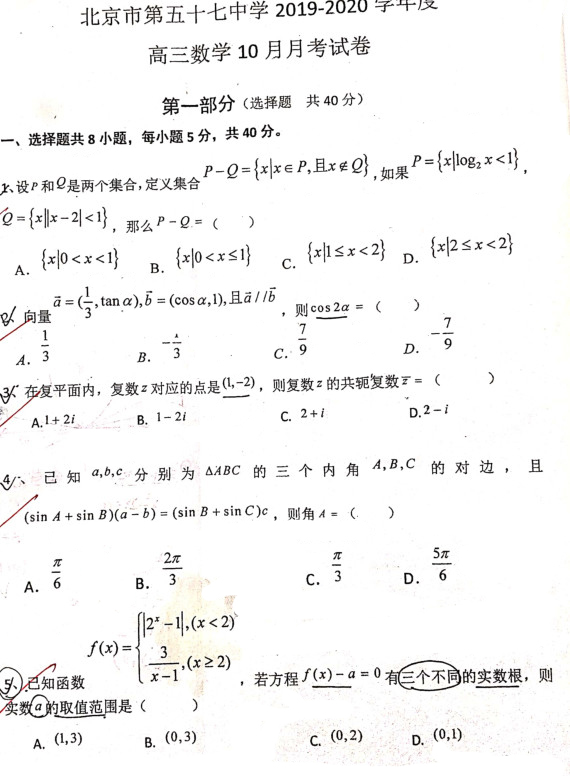 北京市第五十七中学 2019-2020 学年度
高三数学 10 月月考试卷
第一部分（选择题 共 40 分）
一、选择题共 8 小题，每小题 5 分，共 40 分。
1、设P和Q是两个集合，定义集合 P-Q={x|x∈P,且x∉Q}，如果 P={x|log₂x<1}，
Q={x||x-2|<1}，那么 P-Q=（ ）
A. {x|0<x<1} B. {x|0<x≤1} C. {x|1≤x<2} D. {x|2≤x<2}
2、向量 a⃗=(1/3,tanα),b⃗=(cosα,1),且a⃗//b⃗，则cos2α=（ ）
A. 1/3 B. -1/3 C. 7/9 D. -7/9
3、在复平面内，复数z对应的点是(1,-2)，则复数z的共轭复数z̄=（ ）
A.1+2i B. 1-2i C. 2+i D.2-i
4、已知 a,b,c 分别为 △ABC 的三个内角 A,B,C 的对边，且
(sin A+sin B)(a-b)=(sin B+sin C)c，则角A=（ ）
A. π/6 B. 2π/3 C. π/3 D. 5π/6
5、已知函数 f(x)={|2ˣ-1|,(x<2) 3/(x-1),(x≥2)，若方程 f(x)-a=0 有三个不同的实数根，则
实数a的取值范围是（ ）
A. (1,3) B. (0,3) C. (0,2) D. (0,1)